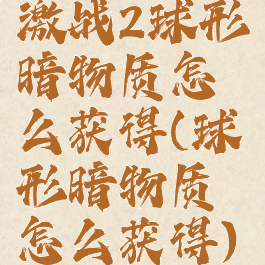 激战2球形
暗物质怎
么获得(球
形暗物质
怎么获得)